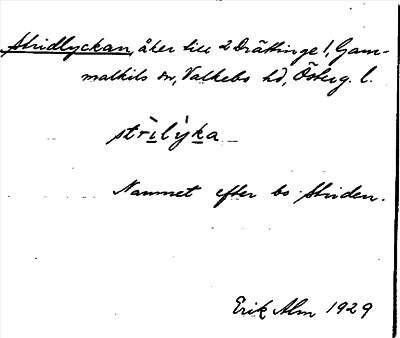 Stridlyckan, åker till 2 Drättinge!, Gam-
malkils sn, Valkebo hd, Österg. l.
strìlýka
Namnet efter bo Striden.
Erik Alm 1929